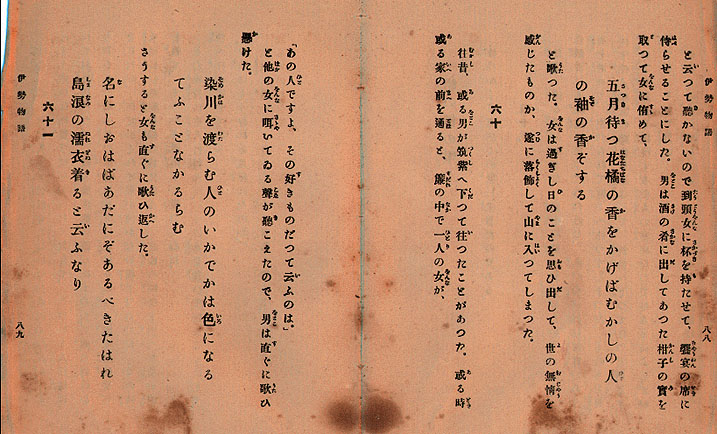 と云つて聽かないので到頭女に杯を持たせて、饗宴の席に
侍らせることにした。男は酒の肴に出してあつた柑子の實を
取つて女に侑めて、
五月待つ花橘の香をかげばむかしの人
の袖の香ぞする
と歌つた。女は過ぎし日のことを思ひ出して、世の無情を
感じたものか、遂に落飾して山に入つてしまつた。
六十
往昔、或る男が筑紫へ下つて往つたことがあつた。或る時
或る家の前を通ると、簾の中で一人の女が、
八八
「あの人ですよ、その好きものだつて云ふのは。」
と他の女に囁いてゐる聲が聽こえたので、男は直ぐに歌ひ
懸けた。
染川を渡らむ人のいかでかは色になる
てふことなかるらむ
さうすると女も直ぐに歌ひ返した。
名にしおはばあだにぞあるべきたはれ
島浪の濡衣着ると云ふなり
六十一
伊勢物語
八九